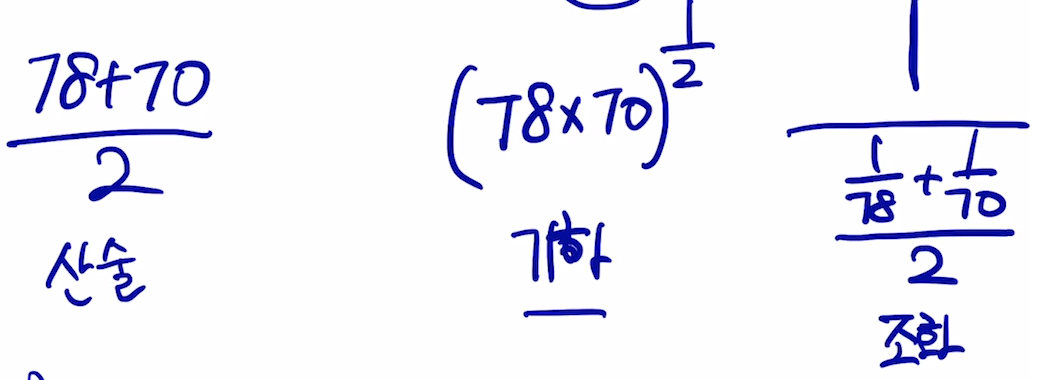 78+70
2
산술
(78×70)^(1/2)
기하
1
1/78 + 1/70
2
조화